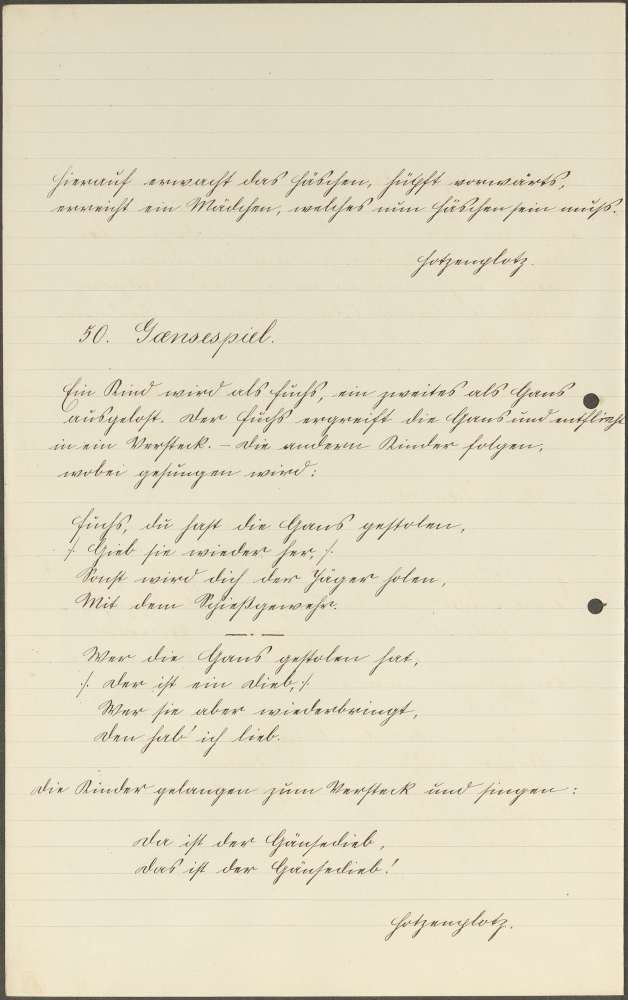 Hierauf erwacht das Häschen, hüpft vorwärts,
erreicht ein Mädchen, welches nun Häschen sein muss.
Hotzenplotz.
50. Gænsespiel.
Ein Kind wird als Fuchs, ein zweites als Gans
ausgelost. Der Fuchs ergreift die Gans und entflieht
in ein Versteck. – Die andern Kinder folgen,
wobei gesungen wird:
Fuchs, du hast die Gans gestolen,
:/: Gieb sie wieder her, :/:
Sonst wird dich der Jäger holen,
Mit dem Schießgewehr.
Wer die Gans gestolen hat,
:/: Der ist ein Dieb, :/:
Wer sie aber wiederbringt,
Den hab' ich lieb.
Die Kinder gelangen zum Versteck und singen:
Da ist der Gänsedieb,
Das ist der Gänsedieb!
Hotzenplotz.